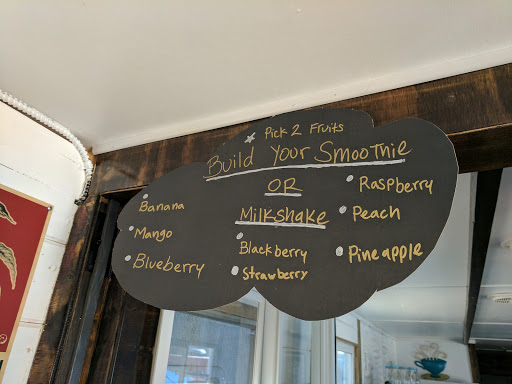 * Pick 2 Fruits
Build Your Smoothie
OR
Milkshake
• Banana
• Mango
• Blueberry
• Blackberry
• Strawberry
• Raspberry
• Peach
• Pineapple